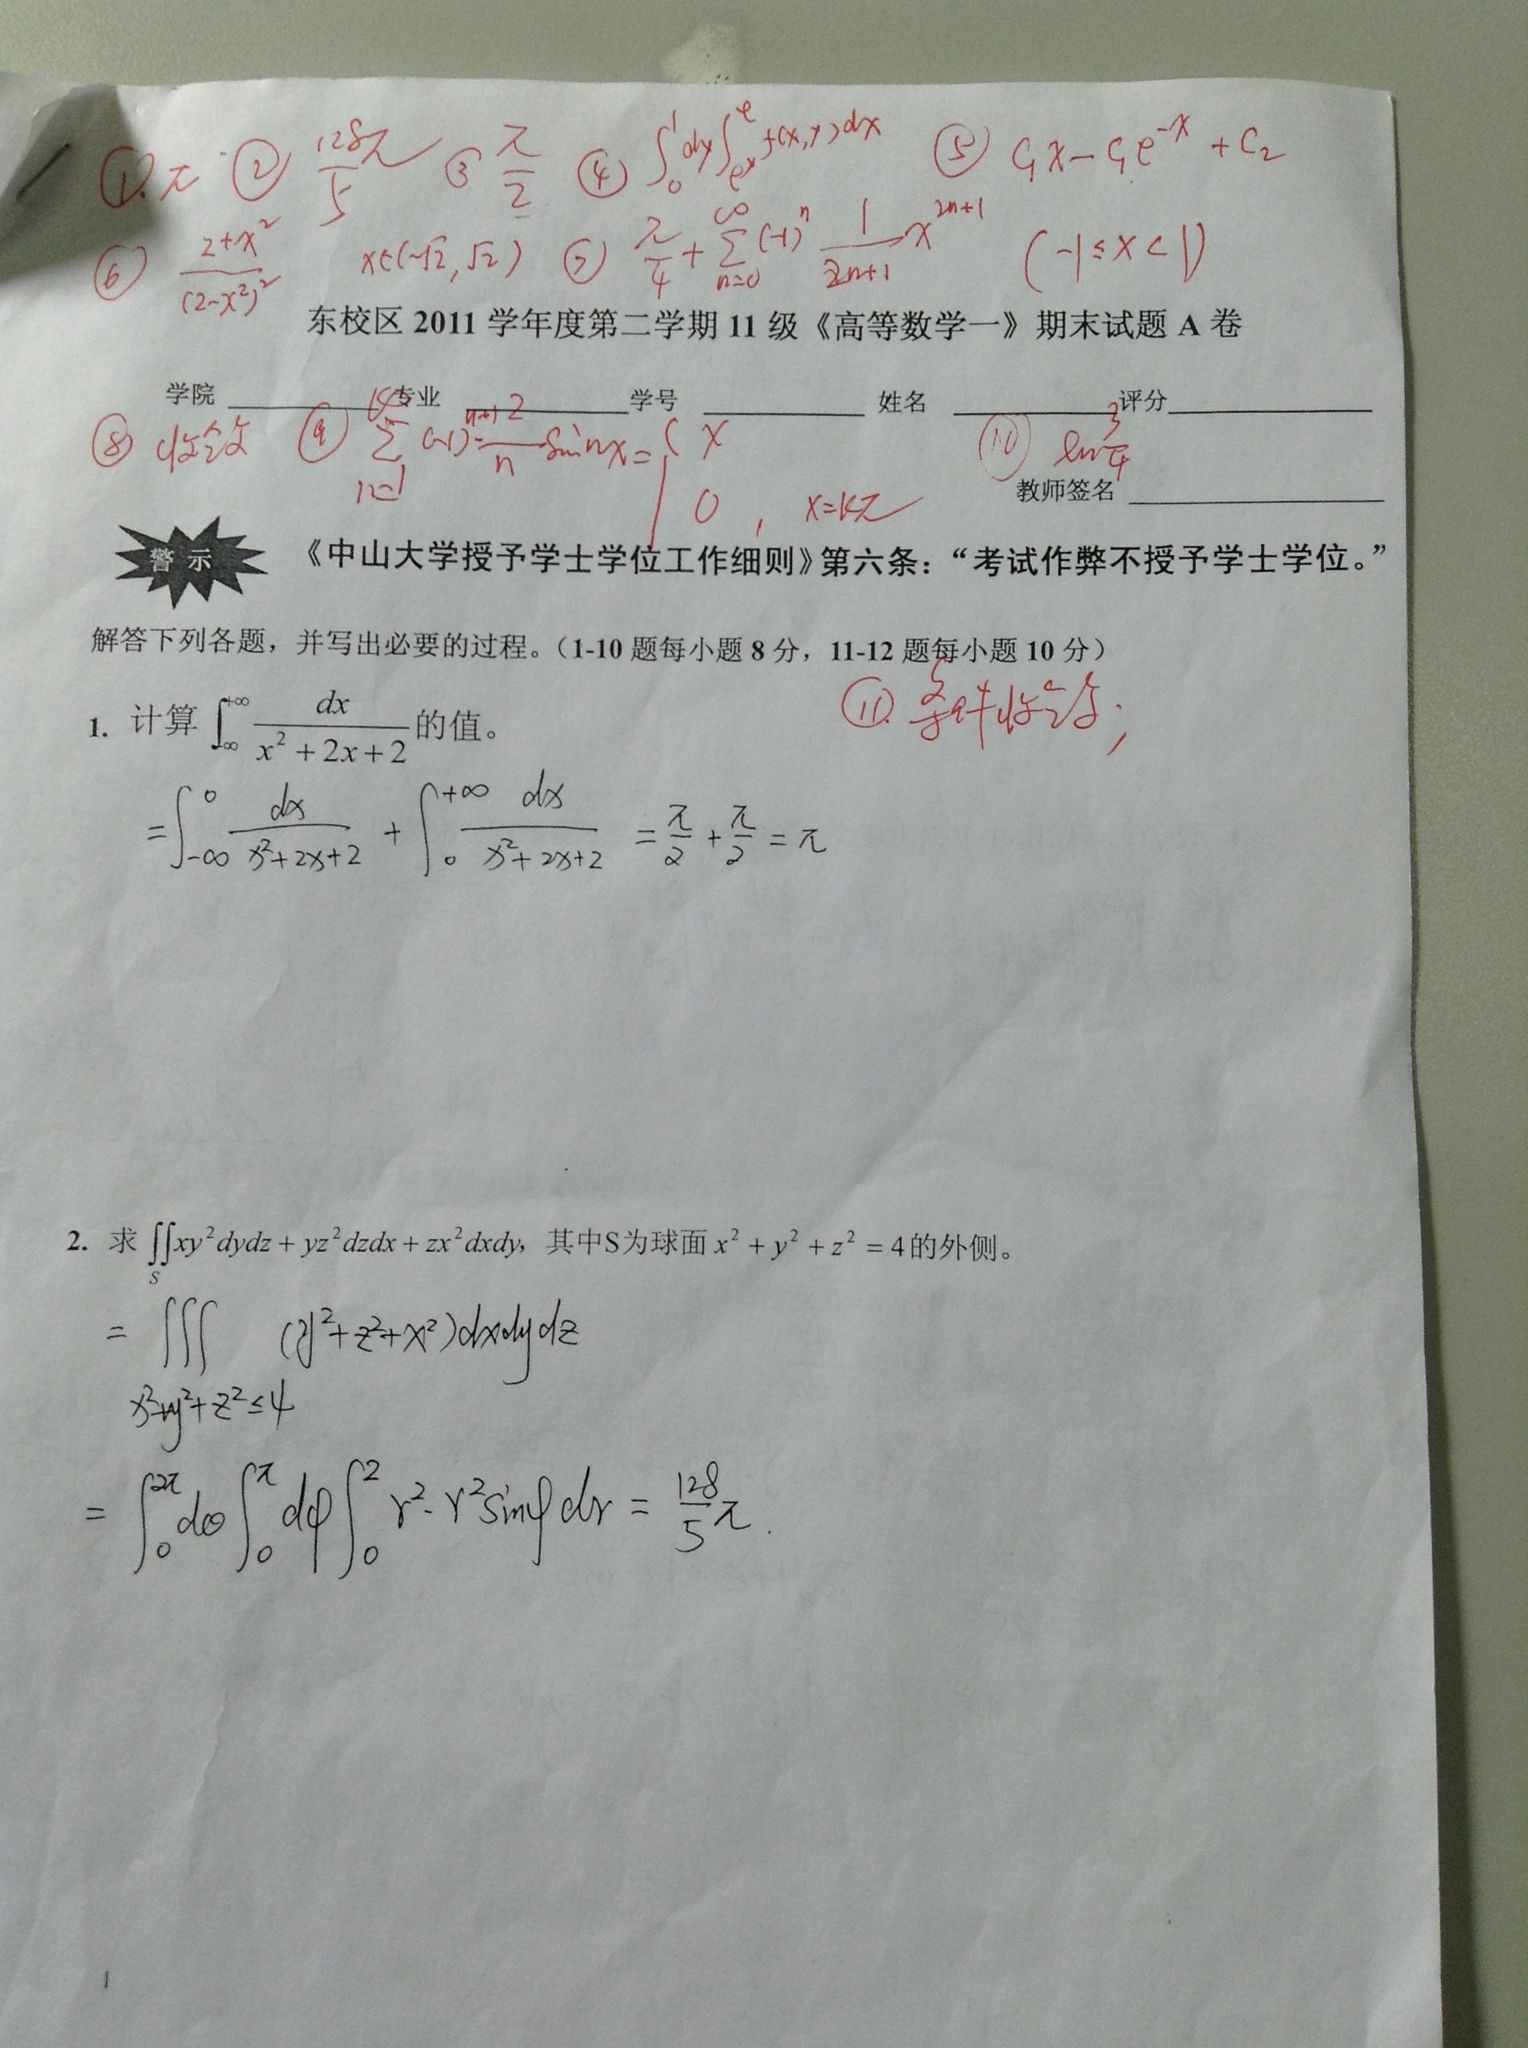 ①. π ② 128π/5 ③ π/2 ④ ∫₀¹dy∫_{eʸ}^{e} f(x,y)dx ⑤ C₁x−C₁e⁻ˣ+C₂
⑥ (2+x²)/(2−x²)² x∈(−√2,√2) ⑦ π/4+∑_{n=0}^{∞}(−1)ⁿ 1/(2n+1) x²ⁿ⁺¹ (−1≤x<1)
东校区 2011 学年度第二学期 11 级《高等数学一》期末试题 A 卷
学院 专业 学号 姓名 评分
⑧ 收敛 ⑨ ∑_{n=1} (−1)ⁿ⁺¹ 2/n sin nx = { x ⑩ ln 3/4
0, x=kπ
教师签名
警示 《中山大学授予学士学位工作细则》第六条：“考试作弊不授予学士学位。”
解答下列各题，并写出必要的过程。（1-10 题每小题 8 分，11-12 题每小题 10 分）
⑪. 条件收敛;
1. 计算 ∫_{-∞}^{+∞} dx/(x²+2x+2) 的值。
=∫_{-∞}^{0} dx/(x²+2x+2) + ∫_{0}^{+∞} dx/(x²+2x+2) = π/2 + π/2 = π
2. 求 ∬_S xy²dydz + yz²dzdx + zx²dxdy, 其中S为球面 x² + y² + z² = 4 的外侧。
= ∭ (y²+z²+x²)dxdydz
x²+y²+z²≤4
= ∫₀^{2π}dθ∫₀^{π}dφ∫₀² r²·r²sinφ dr = 128/5 π.
1